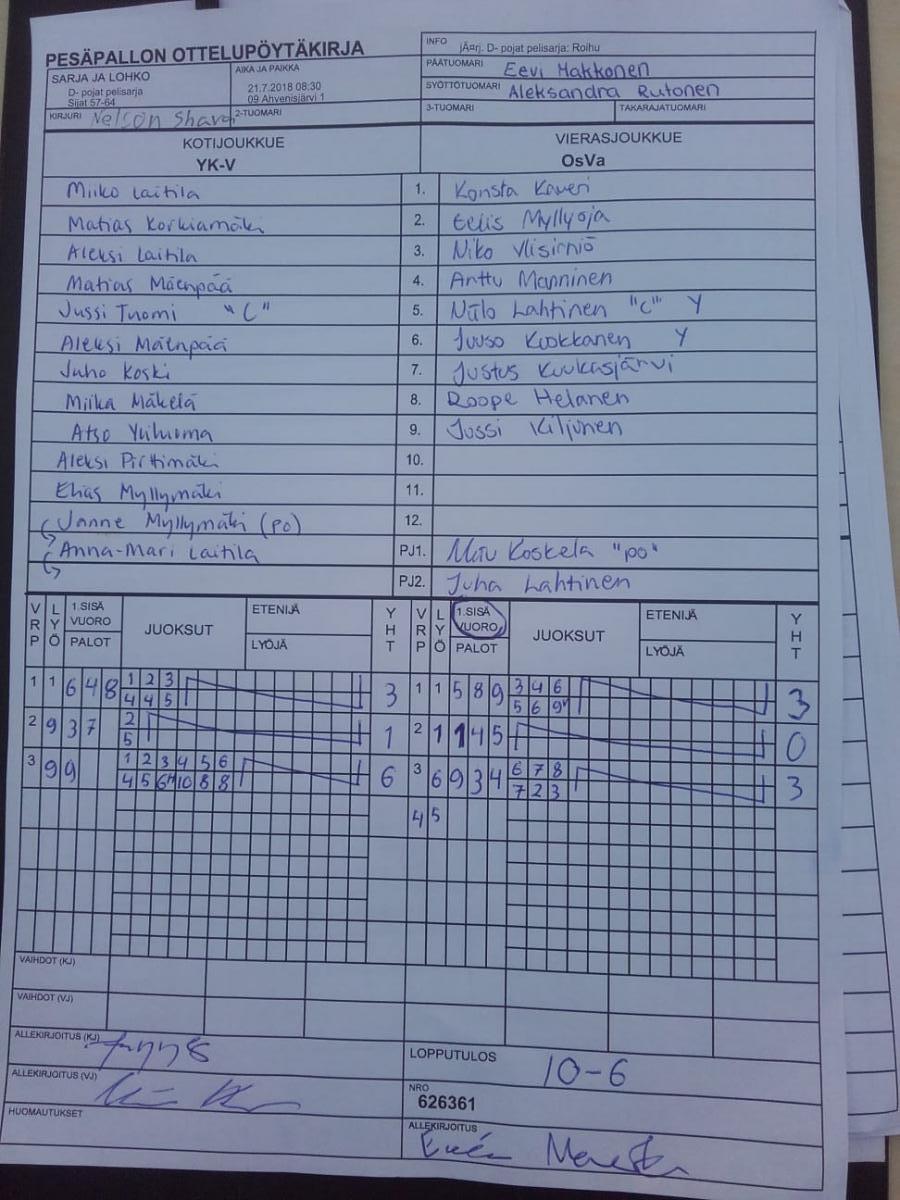 PESÄPALLON OTTELUPÖYTÄKIRJA
INFO jÃ¤rj. D- pojat pelisarja: Roihu
SARJA JA LOHKO
D- pojat pelisarja
Sijat 57-64
AIKA JA PAIKKA
21.7.2018 08:30
09 Ahvenisjärvi 1
PÄÄTUOMARI Eevi Makkonen
SYÖTTÖTUOMARI Aleksandra Rutonen
KIRJURI Nelson
2-TUOMARI
3-TUOMARI
TAKARAJATUOMARI
KOTIJOUKKUE VIERASJOUKKUE
YK-V OsVa
Miiko Laitila 1. Konsta Kaveri
Matias Korkiamäki 2. Eelis Myllyoja
Aleksi Laitila 3. Niko Ylisirniö
Matias Mäenpää 4. Anttu Manninen
Jussi Tuomi "C" 5. Niilo Lahtinen "C" Y
Aleksi Mäenpää 6. Juuso Kuokkanen Y
Juho Koski 7. Justus Kuukasjärvi
Miika Mäkelä 8. Roope Helanen
Atso Yliluoma 9. Jussi Kiljunen
Aleksi Pirttimäki 10.
Elias Myllymäki 11.
Janne Myllymäki (po) 12.
Anna-Mari Laitila PJ1. Koskela "po"
PJ2. Juha Lahtinen
VRP LYÖ 1.SISÄ VUORO PALOT JUOKSUT ETENIJÄ LYÖJÄ YHT VRP LYÖ 1.SISÄ VUORO PALOT JUOKSUT ETENIJÄ LYÖJÄ YHT
1 1 6 4 8 1 2 3 3 1 1 5 8 9 3 4 6 3
4 4 5 5 6 9
2 9 3 7 2 1 2 1 1 4 5 0
5
3 9 9 1 2 3 4 5 6 6 3 6 9 3 4 6 7 8 3
4 5 6 10 8 8 7 2 3
4 5
VAIHDOT (KJ)
VAIHDOT (VJ)
ALLEKIRJOITUS (KJ)
LOPPUTULOS 10-6
ALLEKIRJOITUS (VJ)
NRO
626361
HUOMAUTUKSET
ALLEKIRJOITUS